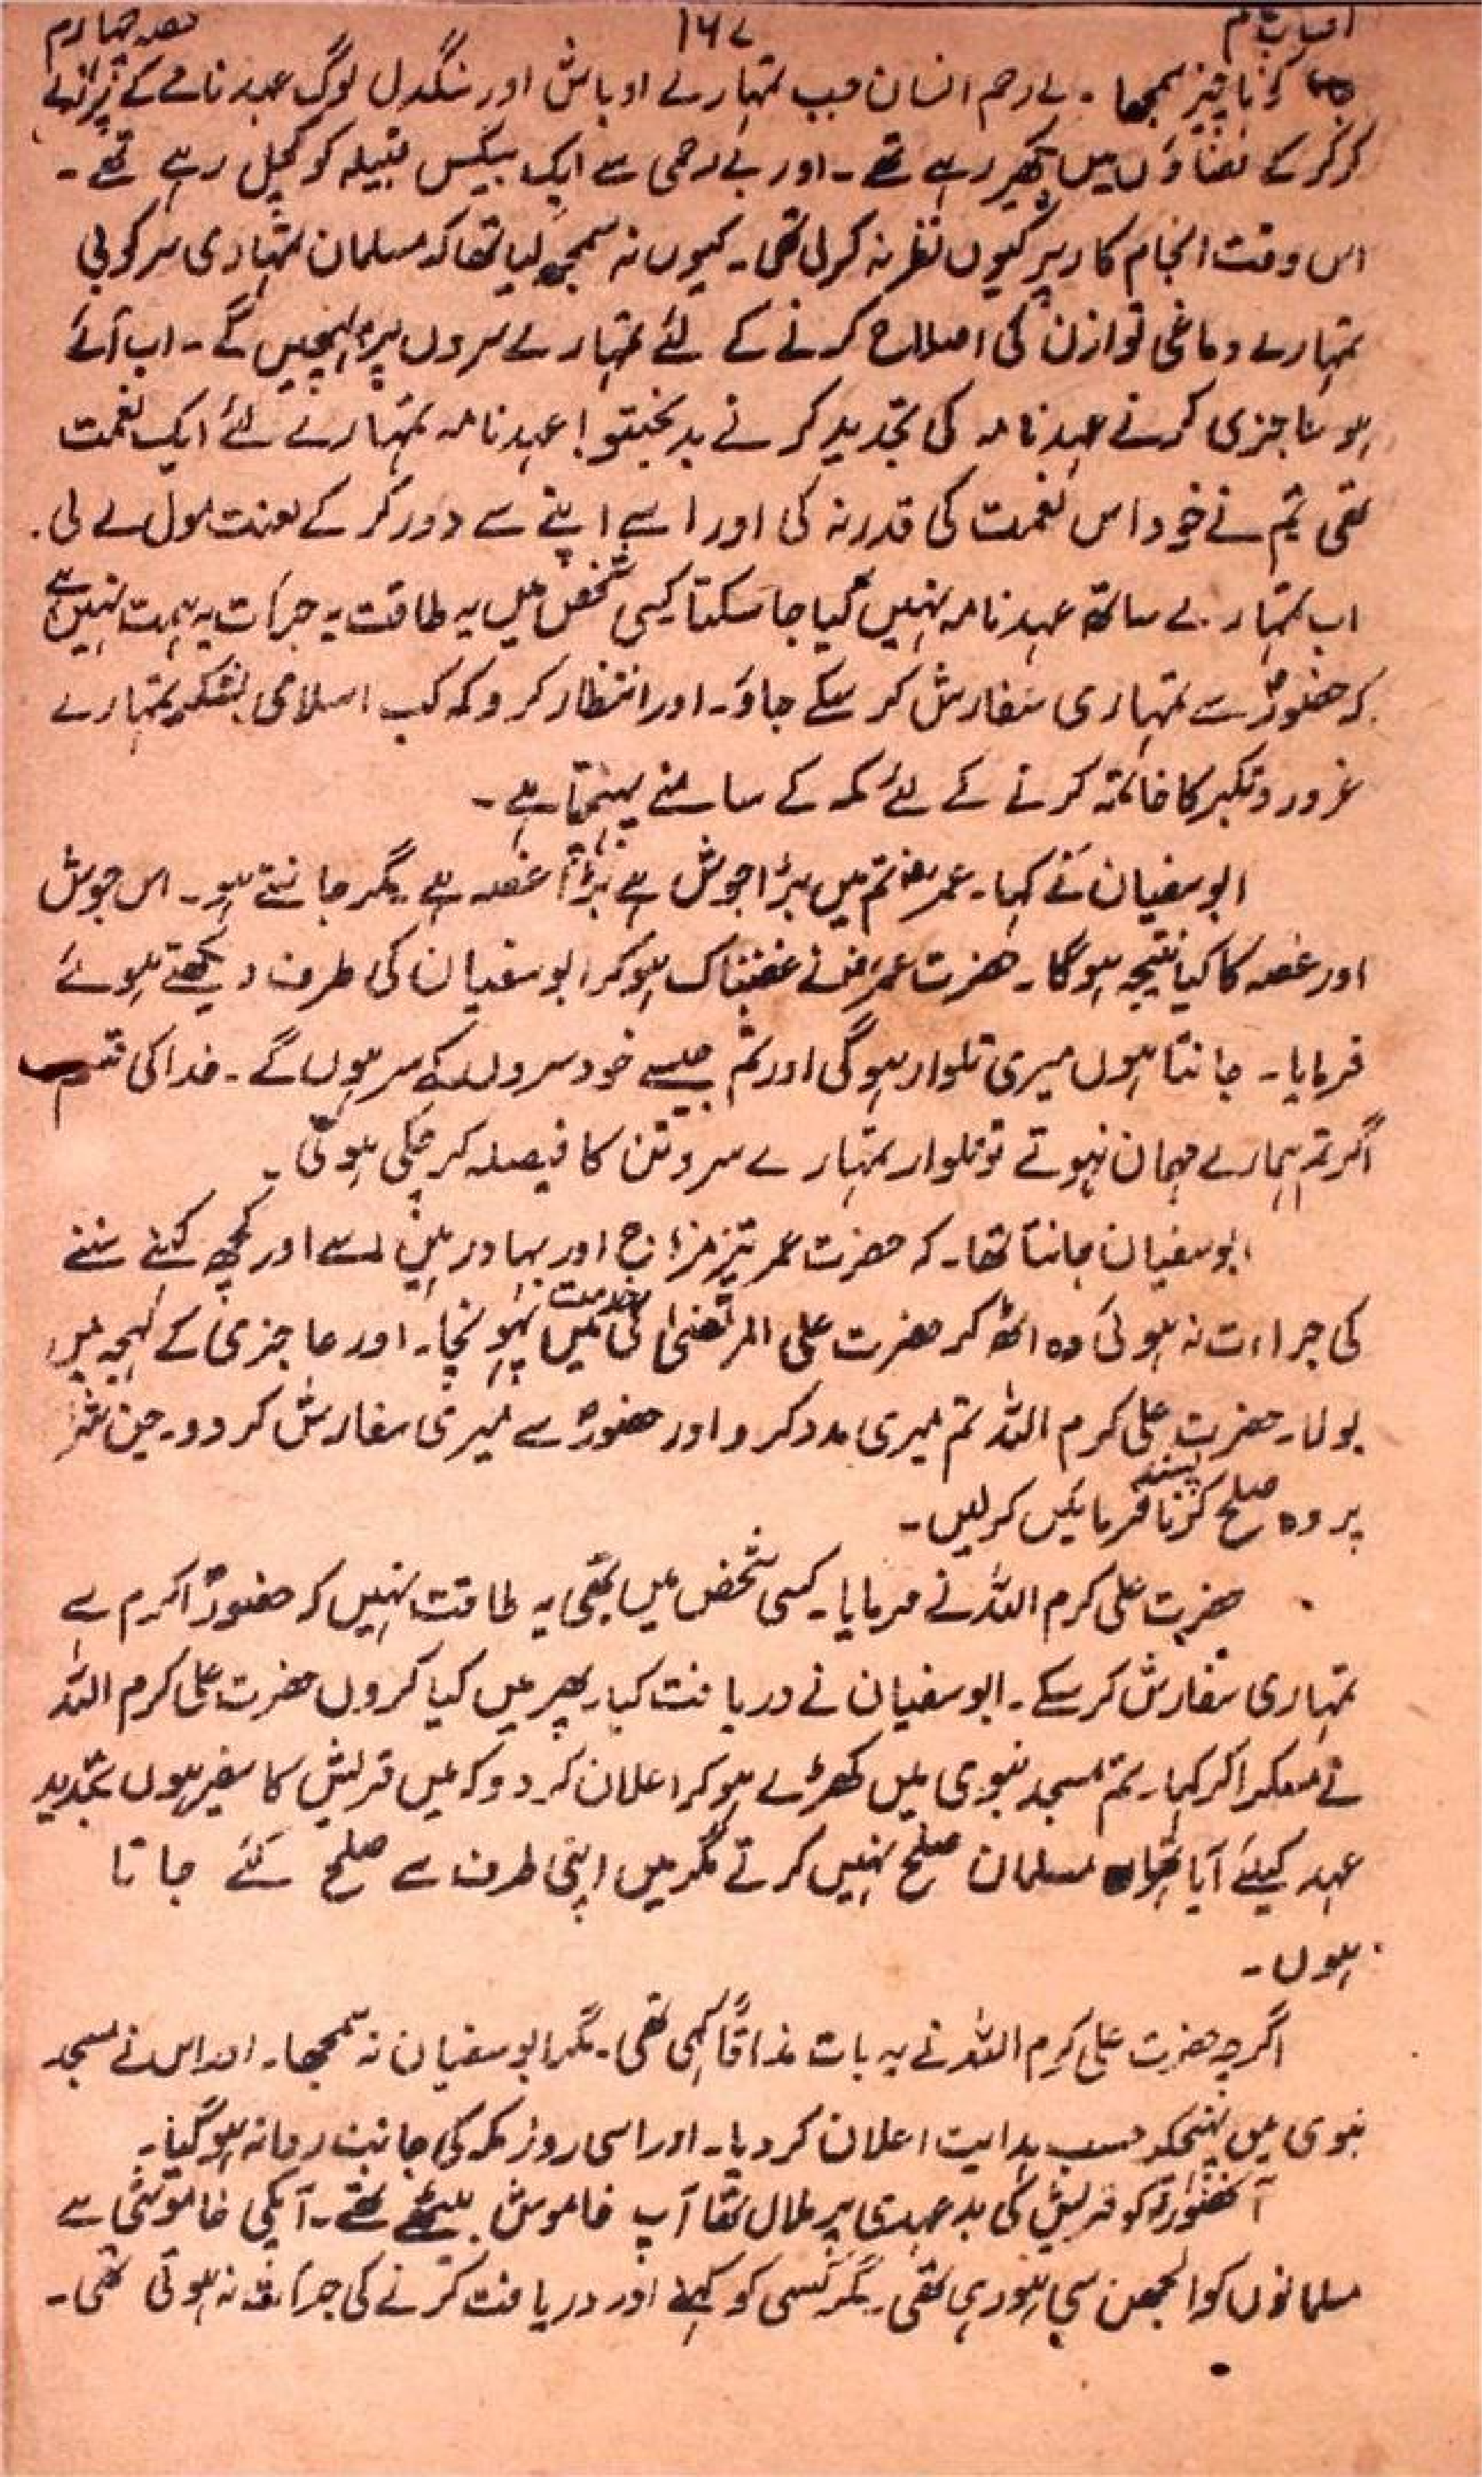 حصہ چہارم ۱۶۷
کو ناچیز سمجھا ۔ بے رحم انسان جب تمہارے اوباش اور سنگدل لوگ عہد نامے کے پُرزے
کرکر کے فضاؤں میں بکھیر رہے تھے ۔ اور بے رحمی سے ایک بیکس قبیلہ کو کچل رہے تھے ۔
اس وقت انجام کار پر کیوں نظر نہ کر لی تھی ۔ کیوں نہ سمجھ لیا تھا کہ مسلمان تمہاری سرکوبی
تمہارے دماغی توازن کی اصلاح کرنے کے لئے تمہارے سروں پر آپہنچیں گے ۔ اب آئے
ہو عاجزی کرنے عہد نامہ کی تجدید کرنے بدبختو! عہد نامہ تمہارے لئے ایک نعمت
تھی تم نے خود اس نعمت کی قدر نہ کی اور اسے اپنے سے دور کر کے لعنت مول لے لی ۔
اب تمہارے ساتھ عہد نامہ نہیں کیا جا سکتا کسی شخص میں یہ طاقت یہ جرات یہ ہمت نہیں ہے
کہ حضورؐ سے تمہاری سفارش کر سکے جاؤ ۔ اور انتظار کرو کہ کب اسلامی لشکر تمہارے
غرور و تکبر کا خاتمہ کرنے کے لئے مکہ کے سامنے پہنچتا ہے ۔
ابوسفیان نے کہا ۔ عمرؓ تم میں بڑا جوش ہے بڑا غصہ ہے ۔ مگر جانتے ہو ۔ اس جوش
اور غصہ کا کیا نتیجہ ہو گا ۔ حضرت عمرؓ نے غضبناک ہو کر ابوسفیان کی طرف دیکھتے ہوئے
فرمایا ۔ جانتا ہوں میری تلوار ہو گی اور تم جیسے خود سروں کے سر ہوں گے ۔ خدا کی قسم
اگر تم ہمارے مہمان نہوتے تو تلوار تمہارے سر و تن کا فیصلہ کر چکی ہوتی ۔
ابوسفیان جانتا تھا ۔ کہ حضرت عمر تیز مزاج اور بہادر ہیں اسے اور کچھ کہنے سننے
کی جراءت نہ ہوئی وہ اٹھ کر حضرت علی المرتضیٰ کی خدمت میں پہونچا ۔ اور عاجزی کے لہجہ میں
بولا ۔ حضرت علی کرم اللہ تم میری مدد کرو اور حضورؐ سے میری سفارش کر دو ۔ جن شرائط
پر وہ صلح کرنا پسند فرمائیں کر لیں ۔
حضرت علی کرم اللہ نے فرمایا ۔ کسی شخص میں بھی یہ طاقت نہیں کہ حضورؐ اکرم سے
تمہاری سفارش کر سکے ۔ ابوسفیان نے دریافت کیا ۔ پھر میں کیا کروں حضرت علی کرم اللہ
نے مسکرا کر کہا ۔ تم مسجد نبوی میں کھڑے ہو کر اعلان کر دو کہ میں قریش کا سفیر ہوں تجدید
عہد کیلئے آیا تھا مسلمان صلح نہیں کرتے مگر میں اپنی طرف سے صلح کئے جاتا
ہوں ۔
اگرچہ حضرت علی کرم اللہ نے یہ بات مذاقاً کہی تھی ۔ مگر ابوسفیان نہ سمجھا ۔ اور اس نے مسجد
نبوی میں پہنچکر حسب ہدایت اعلان کر دیا ۔ اور اسی روز مکہ کی جانب روانہ ہو گیا ۔
آنحضورؐ کو قریش کی بدعہدی پر ملال تھا آپ خاموش بیٹھے تھے ۔ آپکی خاموشی سے
مسلمانوں کو الجھن سی ہو رہی تھی ۔ مگر کسی کو کہنے اور دریافت کرنے کی جرائت نہ ہوتی تھی ۔